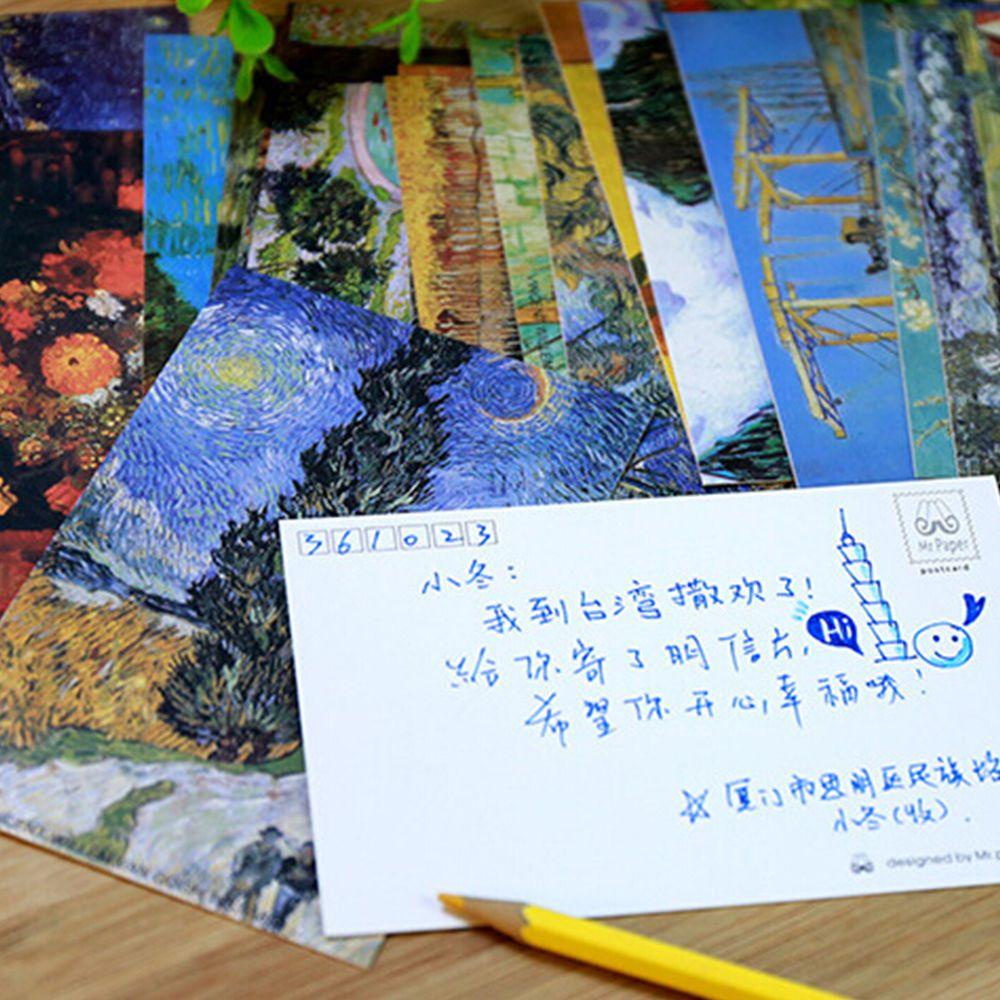 361023
Mr Paper
postcard
小冬：
我到台湾撒欢了！
Hi
给你寄了明信片，
希望你开心，幸福哦！
厦门市思明区民族路
小冬（收）.
designed by Mr.p